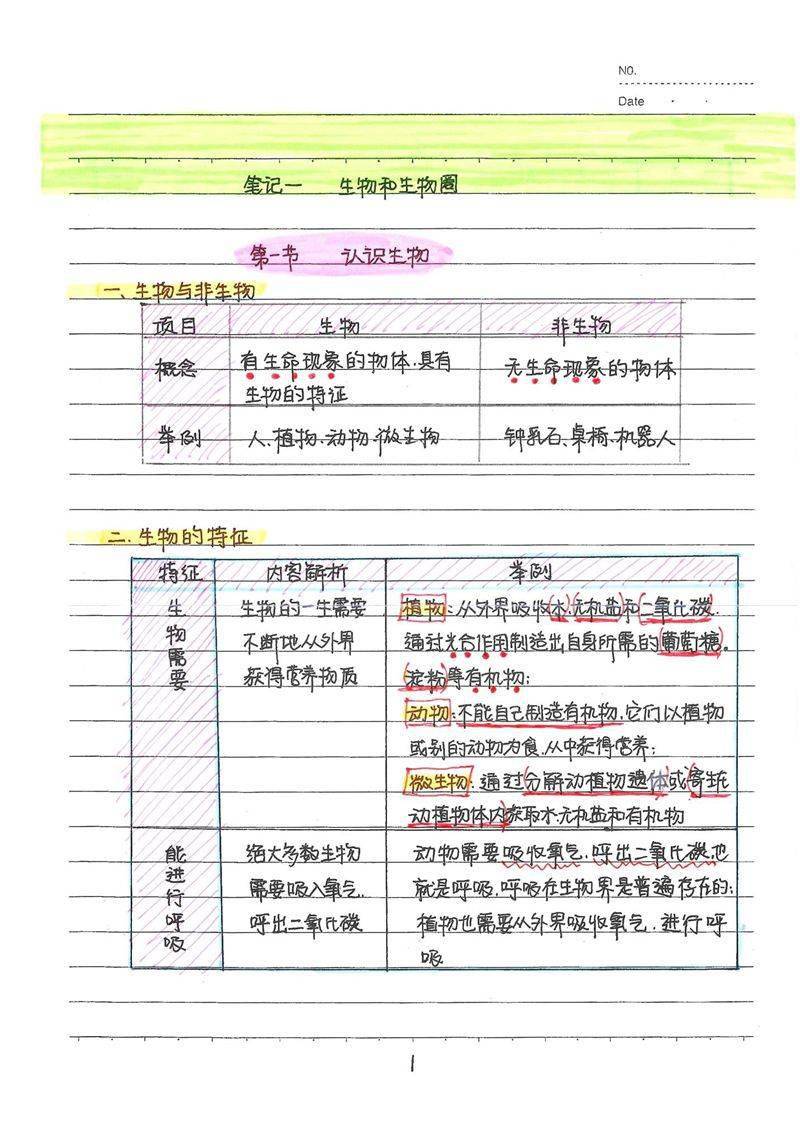 NO.
Date
笔记一 生物和生物圈
第一节 认识生物
一、生物与非生物
项目 生物 非生物
概念 有生命现象的物体,具有生物的特征 无生命现象的物体
举例 人、植物、动物、微生物 钟乳石、桌椅、机器人
二、生物的特征
特征 内容解析 举例
生物需要
生物的一生需要
不断地从外界
获得营养物质
植物:从外界吸收(水)(无机盐)和(二氧化碳),
通过光合作用制造出自身所需的(葡萄糖)、
(淀粉)等有机物;
动物:不能自己制造有机物,它们以植物
或别的动物为食,从中获得营养;
微生物:通过(分解动植物遗体)或(寄生在
动植物体内)获取水、无机盐和有机物
能进行呼吸
绝大多数生物
需要吸入氧气,
呼出二氧化碳
动物需要吸收氧气,呼出二氧化碳,也
就是呼吸,呼吸在生物界是普遍存在的;
植物也需要从外界吸收氧气,进行呼
吸
1